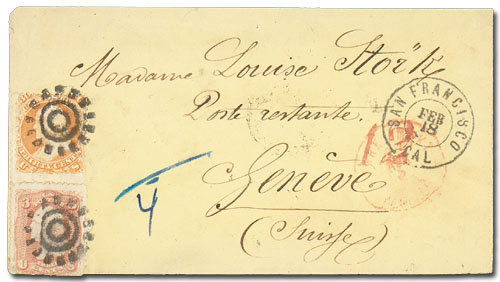 Madame Louise Stork
Poste restante.
Genève
(Suisse)
SAN FRANCISCO
FEB
18
CAL
4
3